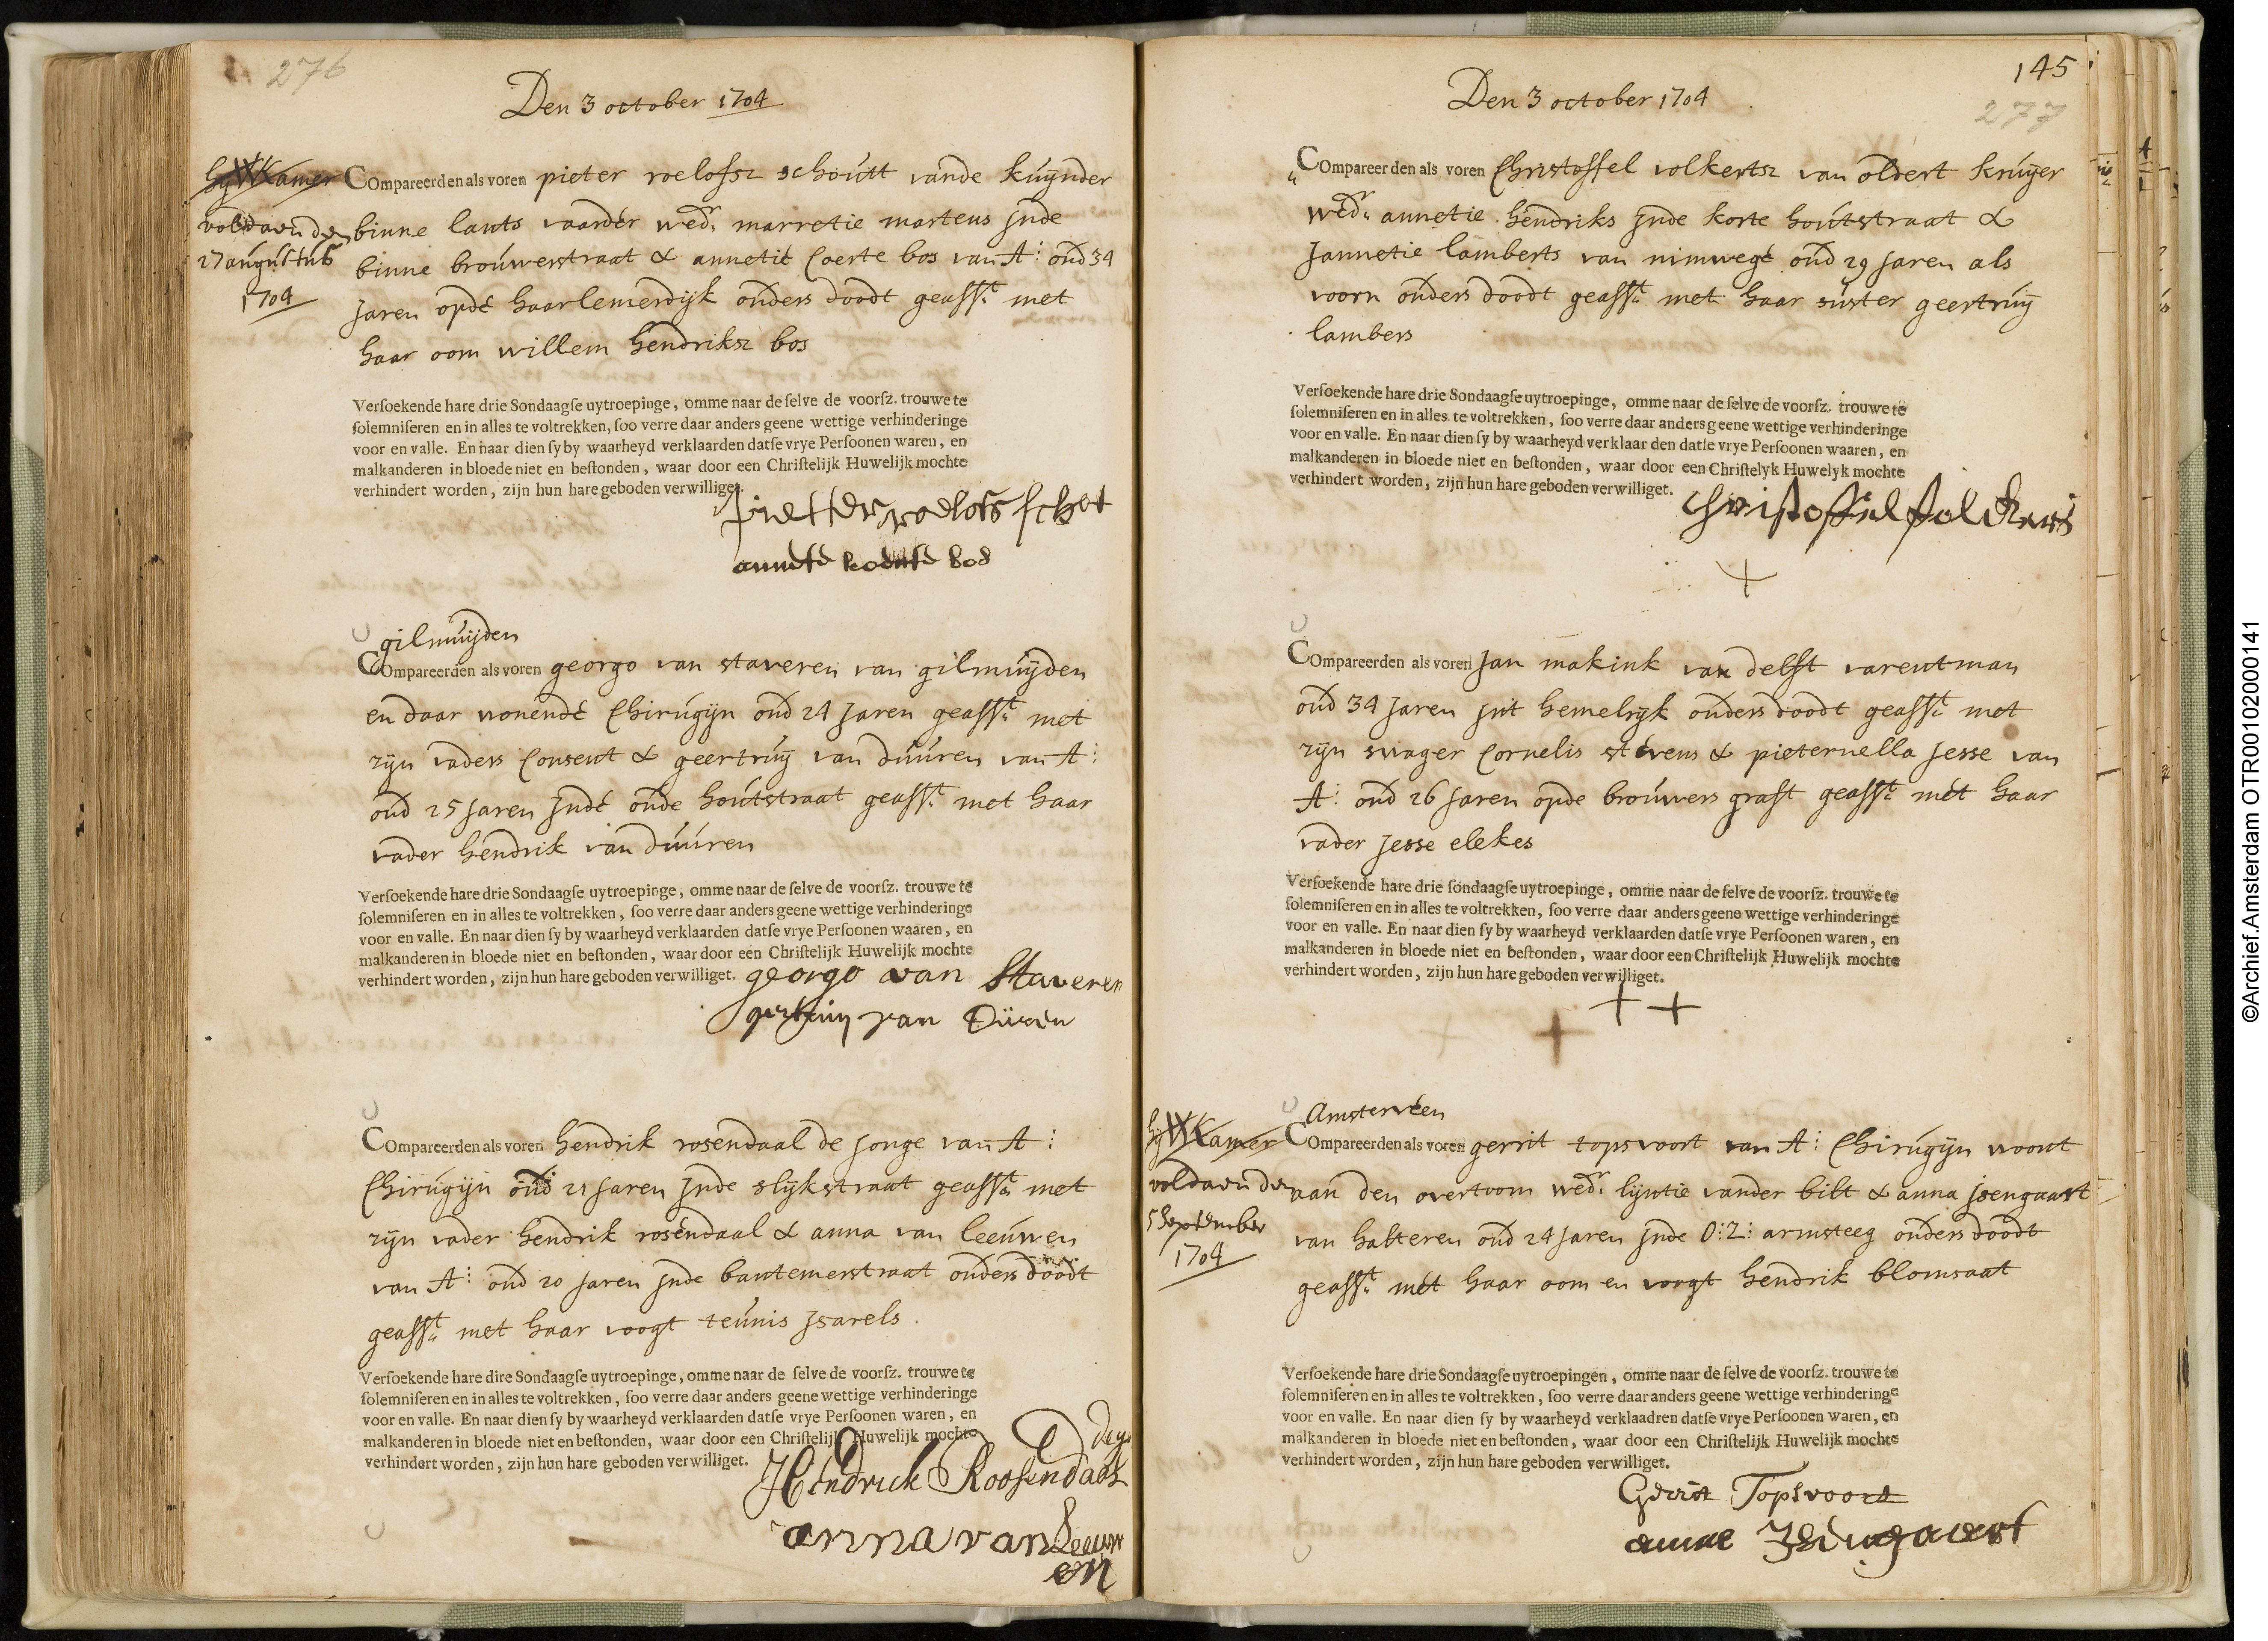 276
Den 3 october 1704
hy WKamer
voldaen den
27 augustus
1704
Compareerden als voren pieter roelofsz schoutt vande kuynder
binne lants vaarder wedr marretie martens jnde
binne brouwerstraat & annetie Coerte bos van A: oud 34
Jaren opde haarlemerdijk ouders doodt geasst met
haar oom willem hendriksz bos
Verſoekende hare drie Sondaagſe uytroepinge, omme naar de ſelve de voorſz. trouwe te
ſolemniſeren en in alles te voltrekken, ſoo verre daar anders geene wettige verhinderinge
voor en valle. En naar dien ſy by waarheyd verklaarden datſe vrye Perſoonen waren, en
malkanderen in bloede niet en beſtonden, waar door een Chriſtelijk Huwelijk mochte
verhindert worden, zijn hun hare geboden verwilliget.
pietter roelofs schot
annete koerte bos
gilmuijden
Compareerden als voren georgo van staveren van gilmuijden
en daar wonende Chirugijn oud 24 Jaren geasst met
zijn vaders Consent & geertruij van duuren van A:
oud 25 Jaren Jnde oude houtstraat geasst met haar
vader hendrik van duuren
Verſoekende hare drie Sondaagſe uytroepinge, omme naar de ſelve de voorſz. trouwe te
ſolemniſeren en in alles te voltrekken, ſoo verre daar anders geene wettige verhinderinge
voor en valle. En naar dien ſy by waarheyd verklaarden datſe vrye Perſoonen waaren, en
malkanderen in bloede niet en beſtonden, waar door een Chriſtelijk Huwelijk mochte
verhindert worden, zijn hun hare geboden verwilliget.
georgo van Staveren
gertruij van Düren
Compareerden als voren hendrik rosendaal de jonge van A:
Chirugijn oud 21 Jaren Jnde slijkstraat geasst met
zijn vader hendrik rosendaal & anna van leeuwen
van A: oud 20 Jaren Jnde bantemerstraat ouders doodt
geasst met haar voogt teunis Jsarels
Verſoekende hare dire Sondaagſe uytroepinge, omme naar de ſelve de voorſz. trouwe te
ſolemniſeren en in alles te voltrekken, ſoo verre daar anders geene wettige verhinderinge
voor en valle. En naar dien ſy by waarheyd verklaarden datſe vrye Perſoonen waren, en
malkanderen in bloede niet en beſtonden, waar door een Chriſtelijk Huwelijk mochte
verhindert worden, zijn hun hare geboden verwilliget.
Hendrick Roosendaal
anna van Leeuw
en
145
277
Den 3 october 1704
Compareerden als voren Christoffel volkertsz van oldert kruijer
wedr annetie hendriks Jnde korte houtstraat &
Jannetie lamberts van nimwege oud 29 Jaren als
voorn ouders doodt geasst met haar suster geertruij
lambers
Verſoekende hare drie Sondaagſe uytroepinge, omme naar de ſelve de voorſz. trouwe te
ſolemniſeren en in alles te voltrekken, ſoo verre daar anders geene wettige verhinderinge
voor en valle. En naar dien ſy by waarheyd verklaar den datſe vrye Perſoonen waaren, en
malkanderen in bloede niet en beſtonden, waar door een Chriſtelyk Huwelyk mochte
verhindert worden, zijn hun hare geboden verwilliget.
Christoffel folckers
Compareerden als voren Jan makink van delft varentman
oud 34 Jaren jnt hemelrijk ouders doodt geasst met
zijn swager Cornelis stevens & pieternella Jesse van
A: oud 26 Jaren opde brouwers graft geasst met haar
vader Jesse elekes
Verſoekende hare drie ſondaagſe uytroepinge, omme naar de ſelve de voorſz. trouwe te
ſolemniſeren en in alles te voltrekken, ſoo verre daar anders geene wettige verhinderinge
voor en valle. En naar dien ſy by waarheyd verklaarden datſe vrye Perſoonen waren, en
malkanderen in bloede niet en beſtonden, waar door een Chriſtelijk Huwelijk mochte
verhindert worden, zijn hun hare geboden verwilliget.
hy WKamer
voldaen den
5 September
1704
Amsterveen
Compareerden als voren gerrit topsvoort van A: Chirugijn woont
aan den overtoom wedr lijntie vander bilt & anna jsengaart
van halteren oud 24 Jaren jnde O:Z: armsteeg ouders doodt
geasst met haar oom en voogt hendrik blomsaat
Verſoekende hare drie Sondaagſe uytroepingen, omme naar de ſelve de voorſz. trouwe te
ſolemniſeren en in alles te voltrekken, ſoo verre daar anders geene wettige verhinderinge
voor en valle. En naar dien ſy by waarheyd verklaadren datſe vrye Perſoonen waren, en
malkanderen in bloede niet en beſtonden, waar door een Chriſtelijk Huwelijk mochte
verhindert worden, zijn hun hare geboden verwilliget.
Gerrit Topsvoort
annae Jsengaert
©Archief.Amsterdam OTR00102000141